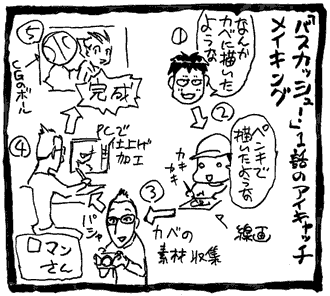 「バスカッシュ！」1話のアイキャッチ
メイキング
①
なんか
カベに描いた
ような
②
ペンキで
描いたような
カキカキ
線画
③
カベの
素材収集
パシャ
④
PCで
仕上げ
加工
ロマン
さん
⑤
CGのボール
完成